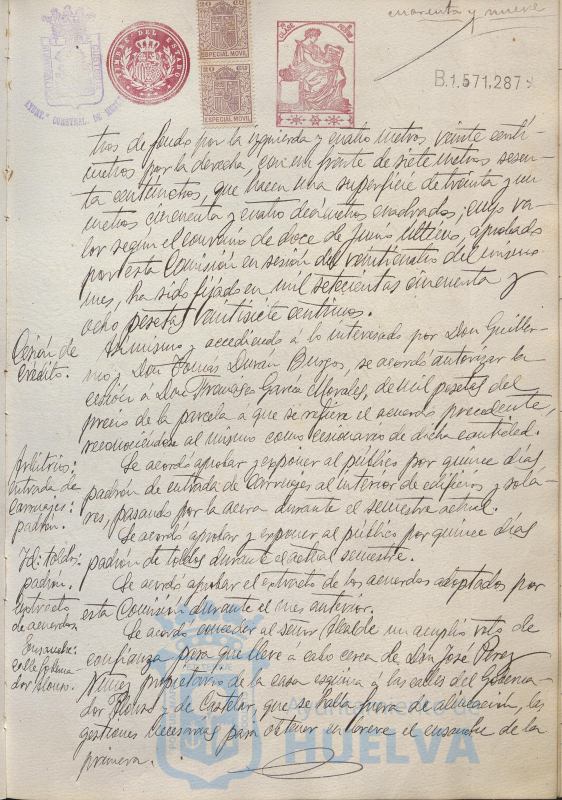 cuarenta y nueve
TIMBRE DEL ESTADO
20 CS 20
ESPECIAL MOVIL
20 CS 20
ESPECIAL MOVIL
8ª CLASE
B.1.571,287
tros de fondo por la izquierda y cuatro metros veinte centí-
metros por la derecha, con un frente de siete metros sesen-
ta centímetros, que hacen una superficie de treinta y un
metros cincuenta y cuatro decímetros cuadrados, cuyo va-
lor segun el convenio de doce de Junio último, aprobado
por esta Comisión en sesión del veinticuatro del mismo
mes, ha sido fijado en mil setecientas cincuenta y
ocho pesetas veintisiete centimos.
Cesión de
crédito.
Asimismo y accediendo á lo interesado por Don Guiller-
mo y Don Tomás Durán Burgos, se acordó autorizar la
cesión á Don Francisco García Morales, de mil pesetas del
precio de la parcela á que se refiere el acuerdo precedente,
reconociéndose al mismo como cesionario de dicha cantidad.
Arbitrios:
entrada de
carruajes:
padrón.
Se acordó aprobar y exponer al público por quince días
padrón de entrada de carruajes al interior de edificios y sola-
res, pasando por la acera durante el semestre actual.
Id: toldos:
padrón.
Se acordó aprobar y exponer al público por quince días
padrón de toldos durante el actual semestre.
Extracto
de acuerdos.
Se acordó aprobar el extracto de los acuerdos adoptados por
esta Comisión durante el mes anterior.
Ensanche
calle Gobernador
Alonso.
Se acordó conceder al señor Alcalde un amplio voto de
confianza para que lleve á cabo cerca de Don José Pérez
Núñez propietario de la casa esquina á las calles del Goberna-
dor Alonso y de Castelar, que se halla fuera de alineación, las
gestiones necesarias para obtener en breve el ensanche de la
primera.
Ayuntamiento de
HUELVA